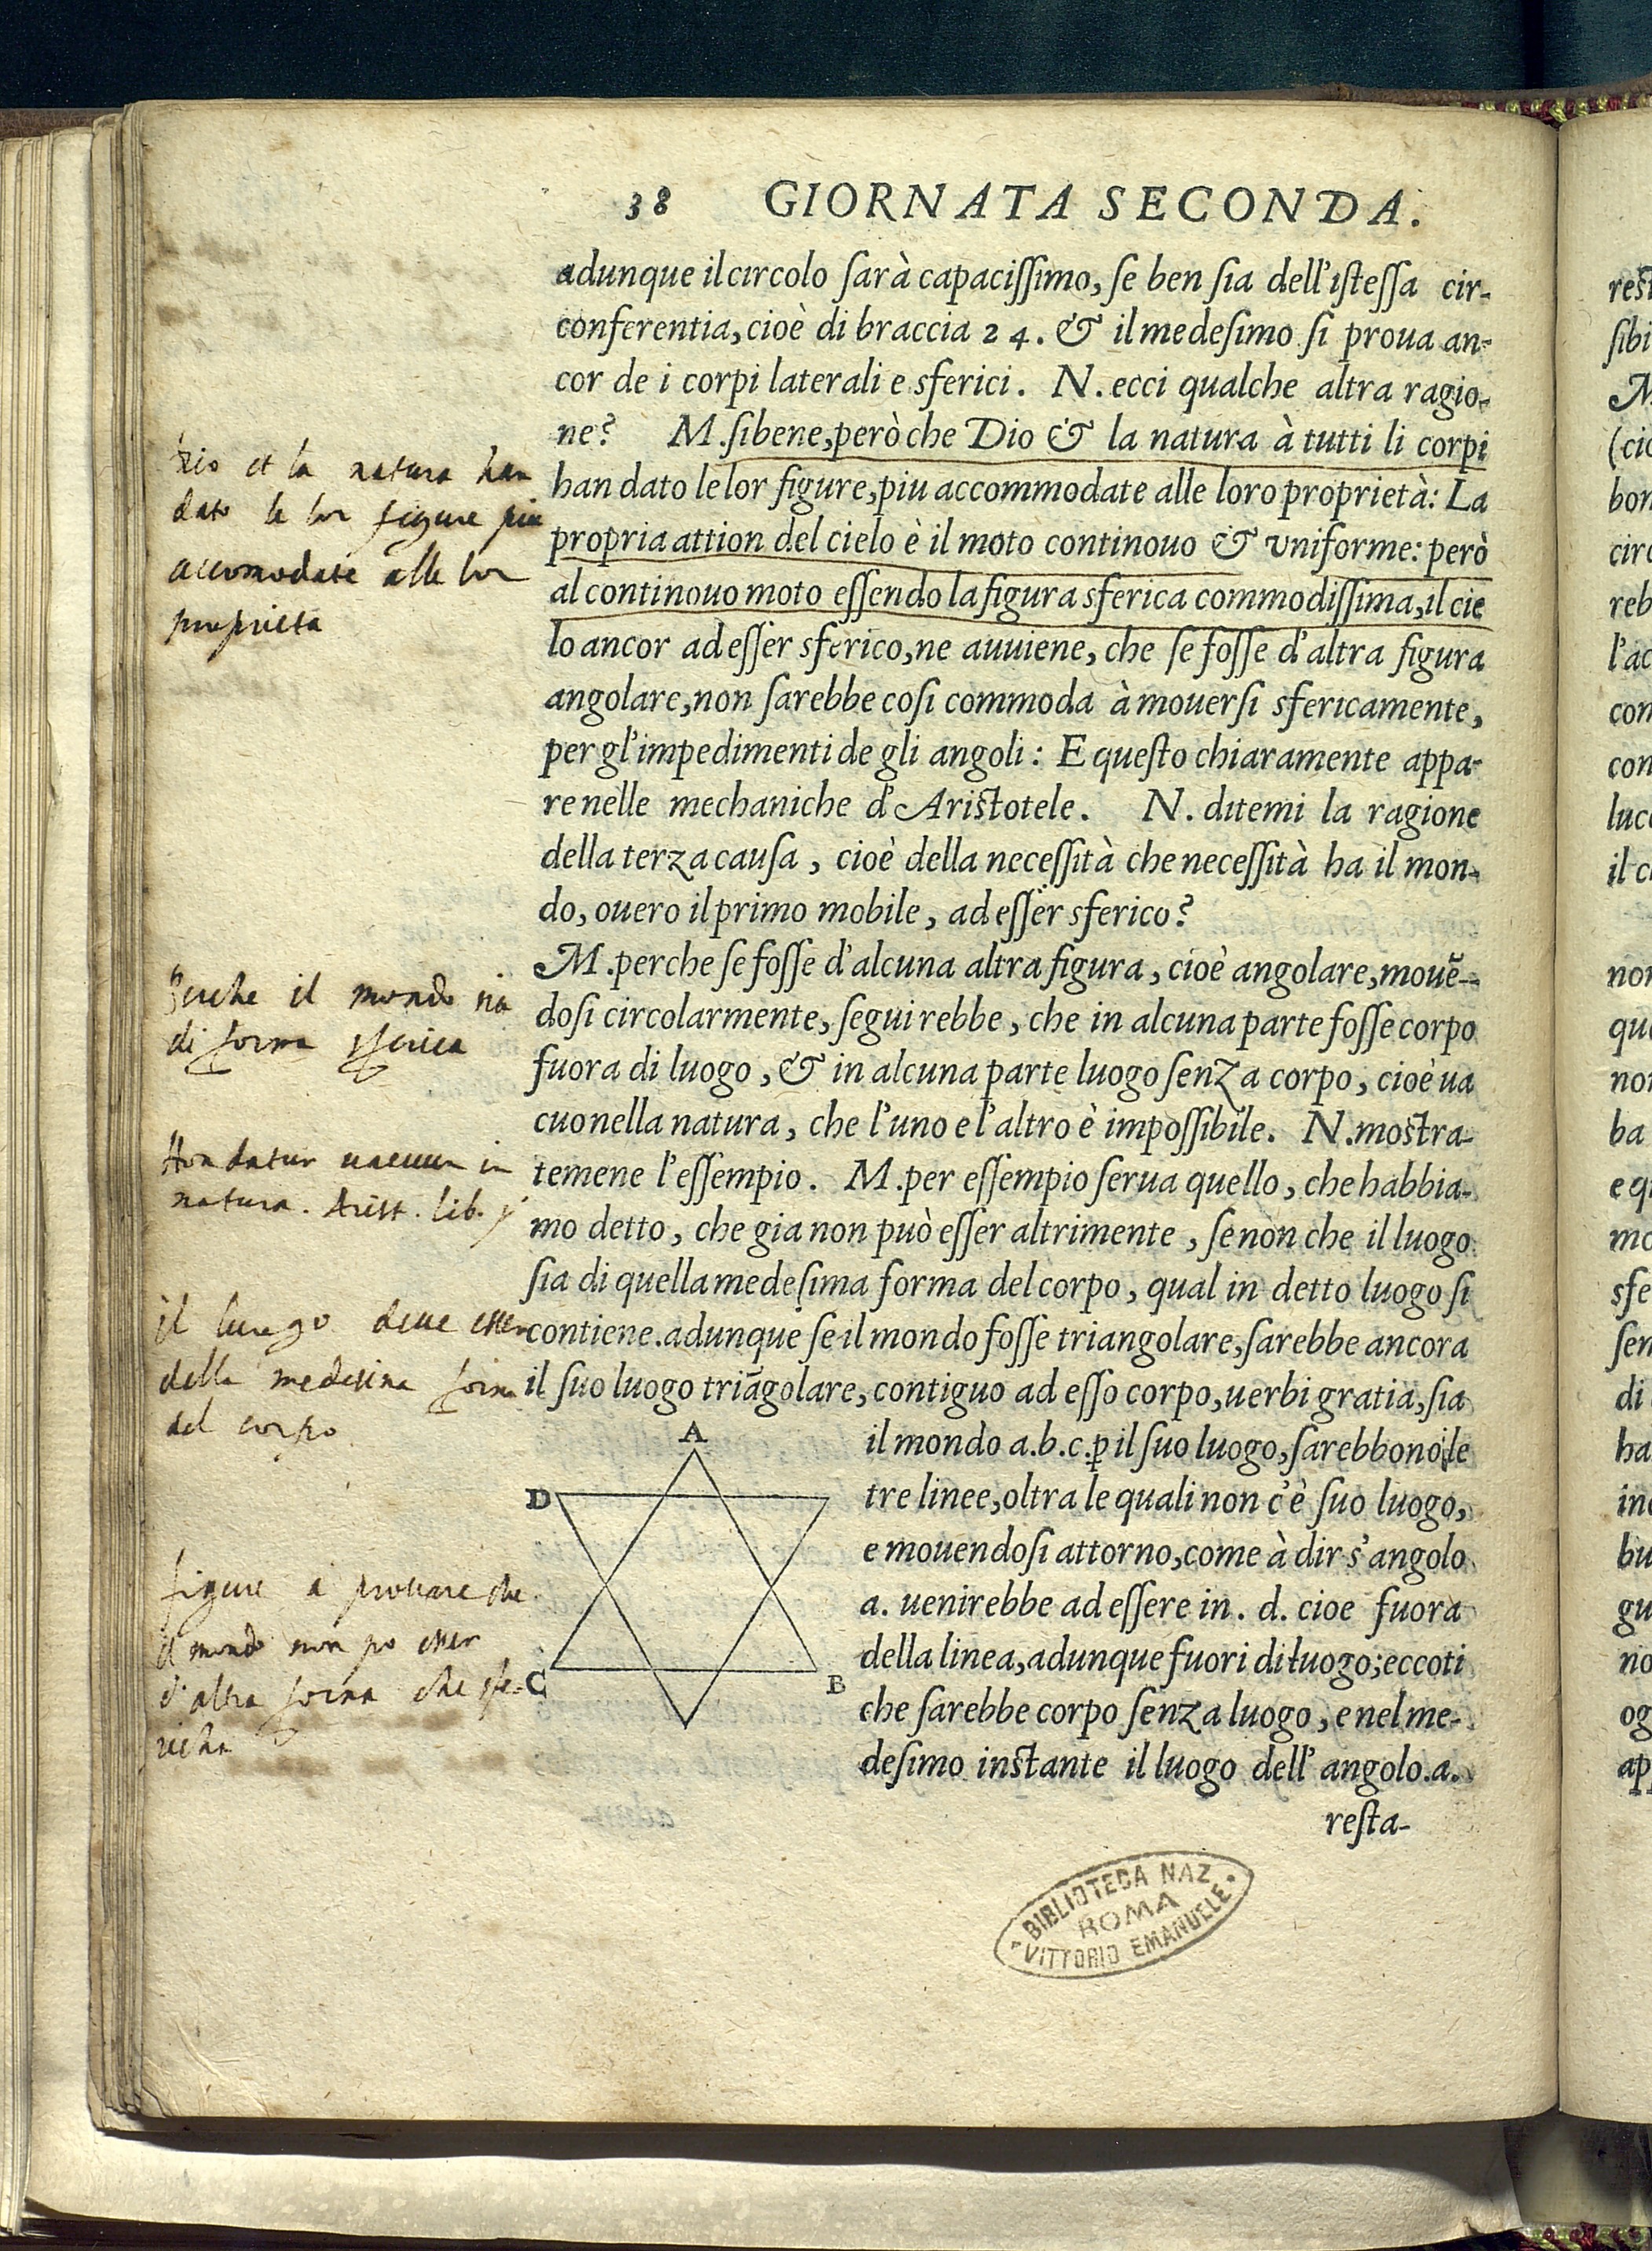 38 GIORNATA SECONDA.
adunque il circolo ſarà capaciſſimo, ſe ben ſia dell'iſteſſa cir-
conferentia, cioè di braccia 24. & il medeſimo ſi proua an-
cor de i corpi laterali e sferici. N. ecci qualche altra ragio-
ne? M. ſibene, però che Dio & la natura à tutti li corpi
han dato le lor figure, piu accommodate alle loro proprietà: La
propria attion del cielo è il moto continouo & vniforme: però
al continouo moto eſſendo la figura sferica commodiſſima, il cie
lo ancor ad eſſer sferico, ne auuiene, che ſe foſſe d'altra figura
angolare, non ſarebbe coſi commoda à mouerſi sfericamente,
per gl'impedimenti de gli angoli: E queſto chiaramente appa-
re nelle mechaniche d'Ariſtotele. N. ditemi la ragione
della terza cauſa, cioè della neceſſità che neceſſità ha il mon-
do, ouero il primo mobile, ad eſſer sferico?
M. perche ſe foſſe d'alcuna altra figura, cioè angolare, mouẽ-
doſi circolarmente, ſeguirebbe, che in alcuna parte foſſe corpo
fuora di luogo, & in alcuna parte luogo ſenza corpo, cioè ua
cuo nella natura, che l'uno e l'altro è impoſſibile. N. moſtra-
temene l'eſſempio. M. per eſſempio ſerua quello, che habbia-
mo detto, che gia non può eſſer altrimente, ſe non che il luogo
ſia di quella medeſima forma del corpo, qual in detto luogo ſi
contiene. adunque ſe il mondo foſſe triangolare, ſarebbe ancora
il ſuo luogo triãgolare, contiguo ad eſſo corpo, uerbi gratia, ſia
il mondo a.b.c. ꝑ il ſuo luogo, ſarebbono le
tre linee, oltra le quali non c'è ſuo luogo,
e mouendoſi attorno, come à dir s'angolo
a. uenirebbe ad eſſere in. d. cioe fuora
della linea, adunque fuori di luogo; eccoti
che ſarebbe corpo ſenza luogo, e nel me-
deſimo inſtante il luogo dell' angolo. a.
reſta-
A
D
C
B
Dio et la natura han
dato le lor figure piu
accomodate alle lor
proprieta
Perche il mondo sia
di forma sferica
Non datur uacuum in
natura. Arist. lib.
il luogo deue esser
della medesima forma
del corpo
figure a prouare che
il mondo non po esser
d'altra forma che sfe-
richa
BIBLIOTECA NAZ.
ROMA
VITTORIO EMANUELE